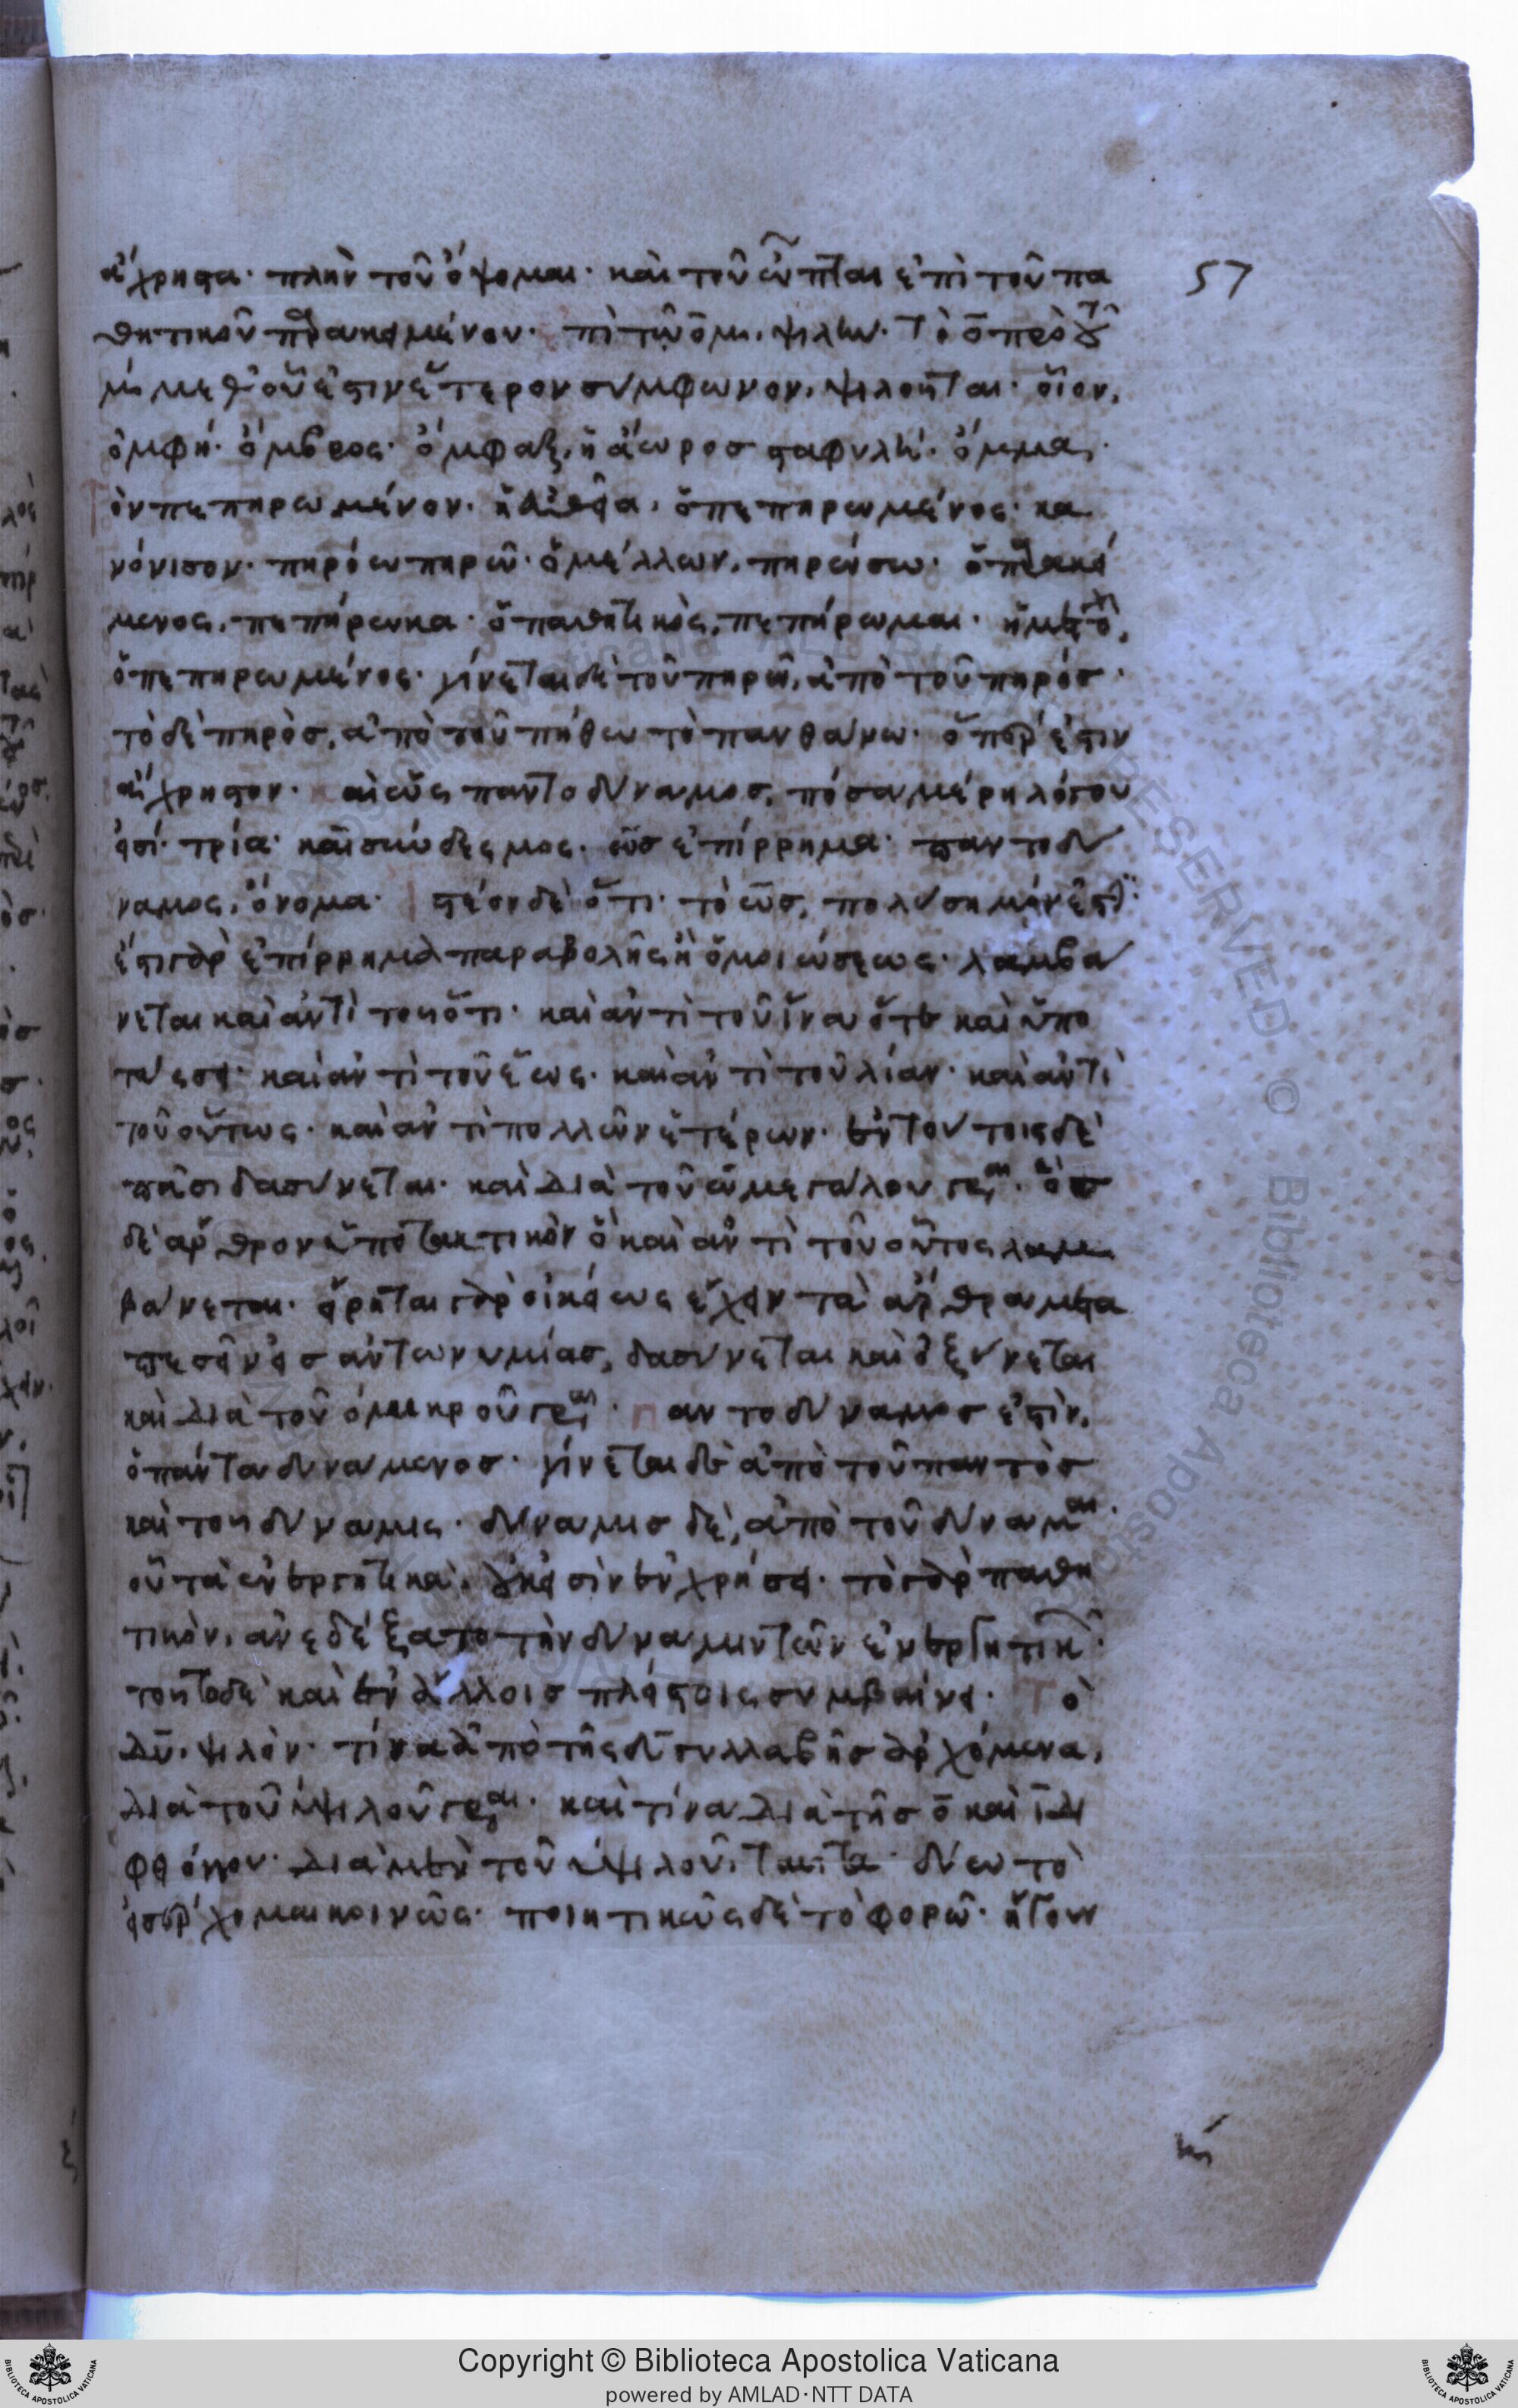 ἄχρηστα· πλὴν τοῦ ὄψομαι· καὶ τοῦ ὦπται ἐπὶ τοῦ πα
57
θητικοῦ παρακειμένου· πὶ τῶ ὄμμ, ψιλὸν. Τὸ ο πρὸ τοῦ
μ, μεθ' οὗ ἐστιν ἕτερον σύμφωνον, ψιλοῦται· οἷον,
ὀμφή· ὄμβρος· ὄμφαξ, ἡ ἄωρος σταφυλή· ὄμμα,
Τὸν πεπηρωμένον· ἡ εὐθεῖα, ὁ πεπηρωμένος· κα
νόνισον· πηρόω πηρῶ· ὁ μέλλων, πηρώσω· ὁ παρακεί
μενος, πεπήρωκα· ὁ παθητικὸς, πεπήρωμαι· ἡ μετοχὴ,
ὁ πεπηρωμένος· γίνεται δὲ τοῦ πηρῶ, ἀπὸ τοῦ πηρός·
τὸ δὲ πηρὸς, ἀπὸ τοῦ πήθω τὸ πανθάνω· ὅπερ ἐστὶν
ἄχρηστον· αὶ ὡς παντοδύναμος, πόσα μέρη λόγου
εἰσί· τρία· καὶ σύνδεσμος· ὡς ἐπίρρημα· παντοδύ
ναμος, ὄνομα· ἰστέον δὲ ὅτι· τὸ ὡς, πολυσήμαντόν ἐστιν·
ἔστι γὰρ ἐπίρρημα παραβολῆς ἢ ὁμοιώσεως· λαμβά
νεται καὶ ἀντὶ τοῦ ὅτι· καὶ ἀντὶ τοῦ ἵνα ὅτε καὶ ὑπο
τάσσει· καὶ ἀντὶ τοῦ ἕως· καὶ ἀντὶ τοῦ λίαν· καὶ ἀντὶ
τοῦ οὕτως· καὶ ἀντὶ πολλῶν ἑτέρων· ἐν τούτοις δὲ
πᾶσι δασύνεται· καὶ διὰ τοῦ ω μεγάλου γράφεται· ὃς
δὲ ἄρθρον ὑποτακτικὸν ὃ καὶ ἀντὶ τοῦ οὗτος λαμ
βάνεται· εἴρηται γὰρ οἰκείως ἔχειν τὰ ἄρθρα μετα
πεσεῖν εἰς ἀντωνυμίας, δασύνεται καὶ ὀξύνεται
καὶ διὰ τοῦ ο μικροῦ γράφεται· Παντοδύναμος ἐστὶν,
ὁ πάντα δυνάμενος· γίνεται δὲ ἀπὸ τοῦ παντὸς
καὶ τοῦ δύναμις· δύναμις δὲ, ἀπὸ τοῦ δύναμαι·
οὗ τὰ ἐνεργητικὰ, οὐκ εἰσὶν ἐν χρήσει· τὸ γὰρ παθη
τικὸν, ἀνεδέξατο τὴν δύναμιν τῶν ἐνεργητικῶν·
τοῦτο δὲ καὶ ἐν ἄλλοις πλείστοις συμβαίνει· Τὸ
δυ, ψιλὸν· τίνα ἀπὸ τῆς δυ συλλαβῆς ἀρχόμενα,
διὰ τοῦ υ ψιλοῦ γράφεται· καὶ τίνα διὰ τῆς ο καὶ ι δι
φθόγγου· διὰ μὲν τοῦ υ ψιλοῦ, ταῦτα· δύω τὸ
εἰσέρχομαι κοινῶς· ποιητικῶς δὲ τὸ φορῶ· ἤγουν